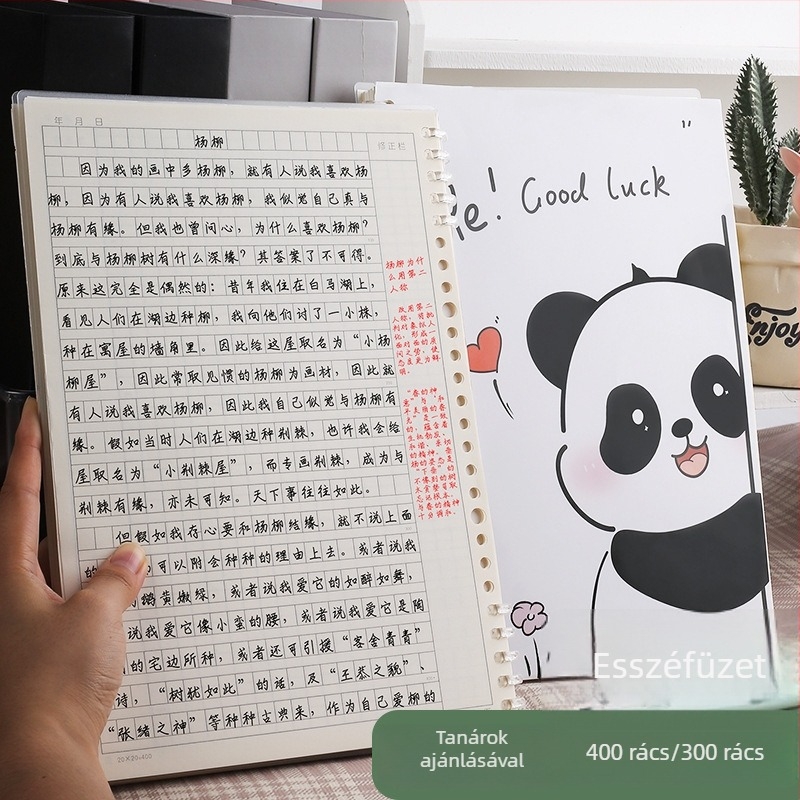 年 月 日
杨柳
修正栏
因为我的画中多杨柳，就有人说我喜欢杨
柳，因为有人说我喜欢杨柳，我似觉自己真与
杨柳有缘。但我也曾问心，为什么喜欢杨柳？
到底与杨柳树有什么深缘？其答案了不可得。
原来这完全是偶然的：昔年我住在白马湖上，
看见人们在湖边种柳，我向他们讨了一小株，
种在寓屋的墙角里。因此给这屋取名为“小杨
柳屋”，因此常取见惯的杨柳为画材，因此就
有人说我喜欢杨柳，因此我自己似觉与杨柳有
缘。假如当时人们在湖边种荆棘，也许我会给
屋取名为“小荆棘屋”，而专画荆棘，成为与
荆棘有缘，亦未可知。天下事往往如此。
但假如我存心要和杨柳结缘，就不说上面
的 可以附会种种的理由上去。或者说我
鹅黄嫩绿，或者说我爱它的如醉如舞，
说我爱它像小蛮的腰，或者说我爱它是陶
的宅边所种，或者还可引援“客舍青青”
诗，“树犹如此”的话，及“王恭之貌”、
“张绪之神”等种种古典来，作为自己爱柳的
20×20=400
杨柳为什
么用第二
人称
改用第二
人称，将批
判对象拟人
化，形成一
面对面的质
问之势，使
态度更为鲜
明。
"
e! Good luck
Enjoy
Esszéfüzet
Tanárok
ajánlásával
400 rács/300 rács